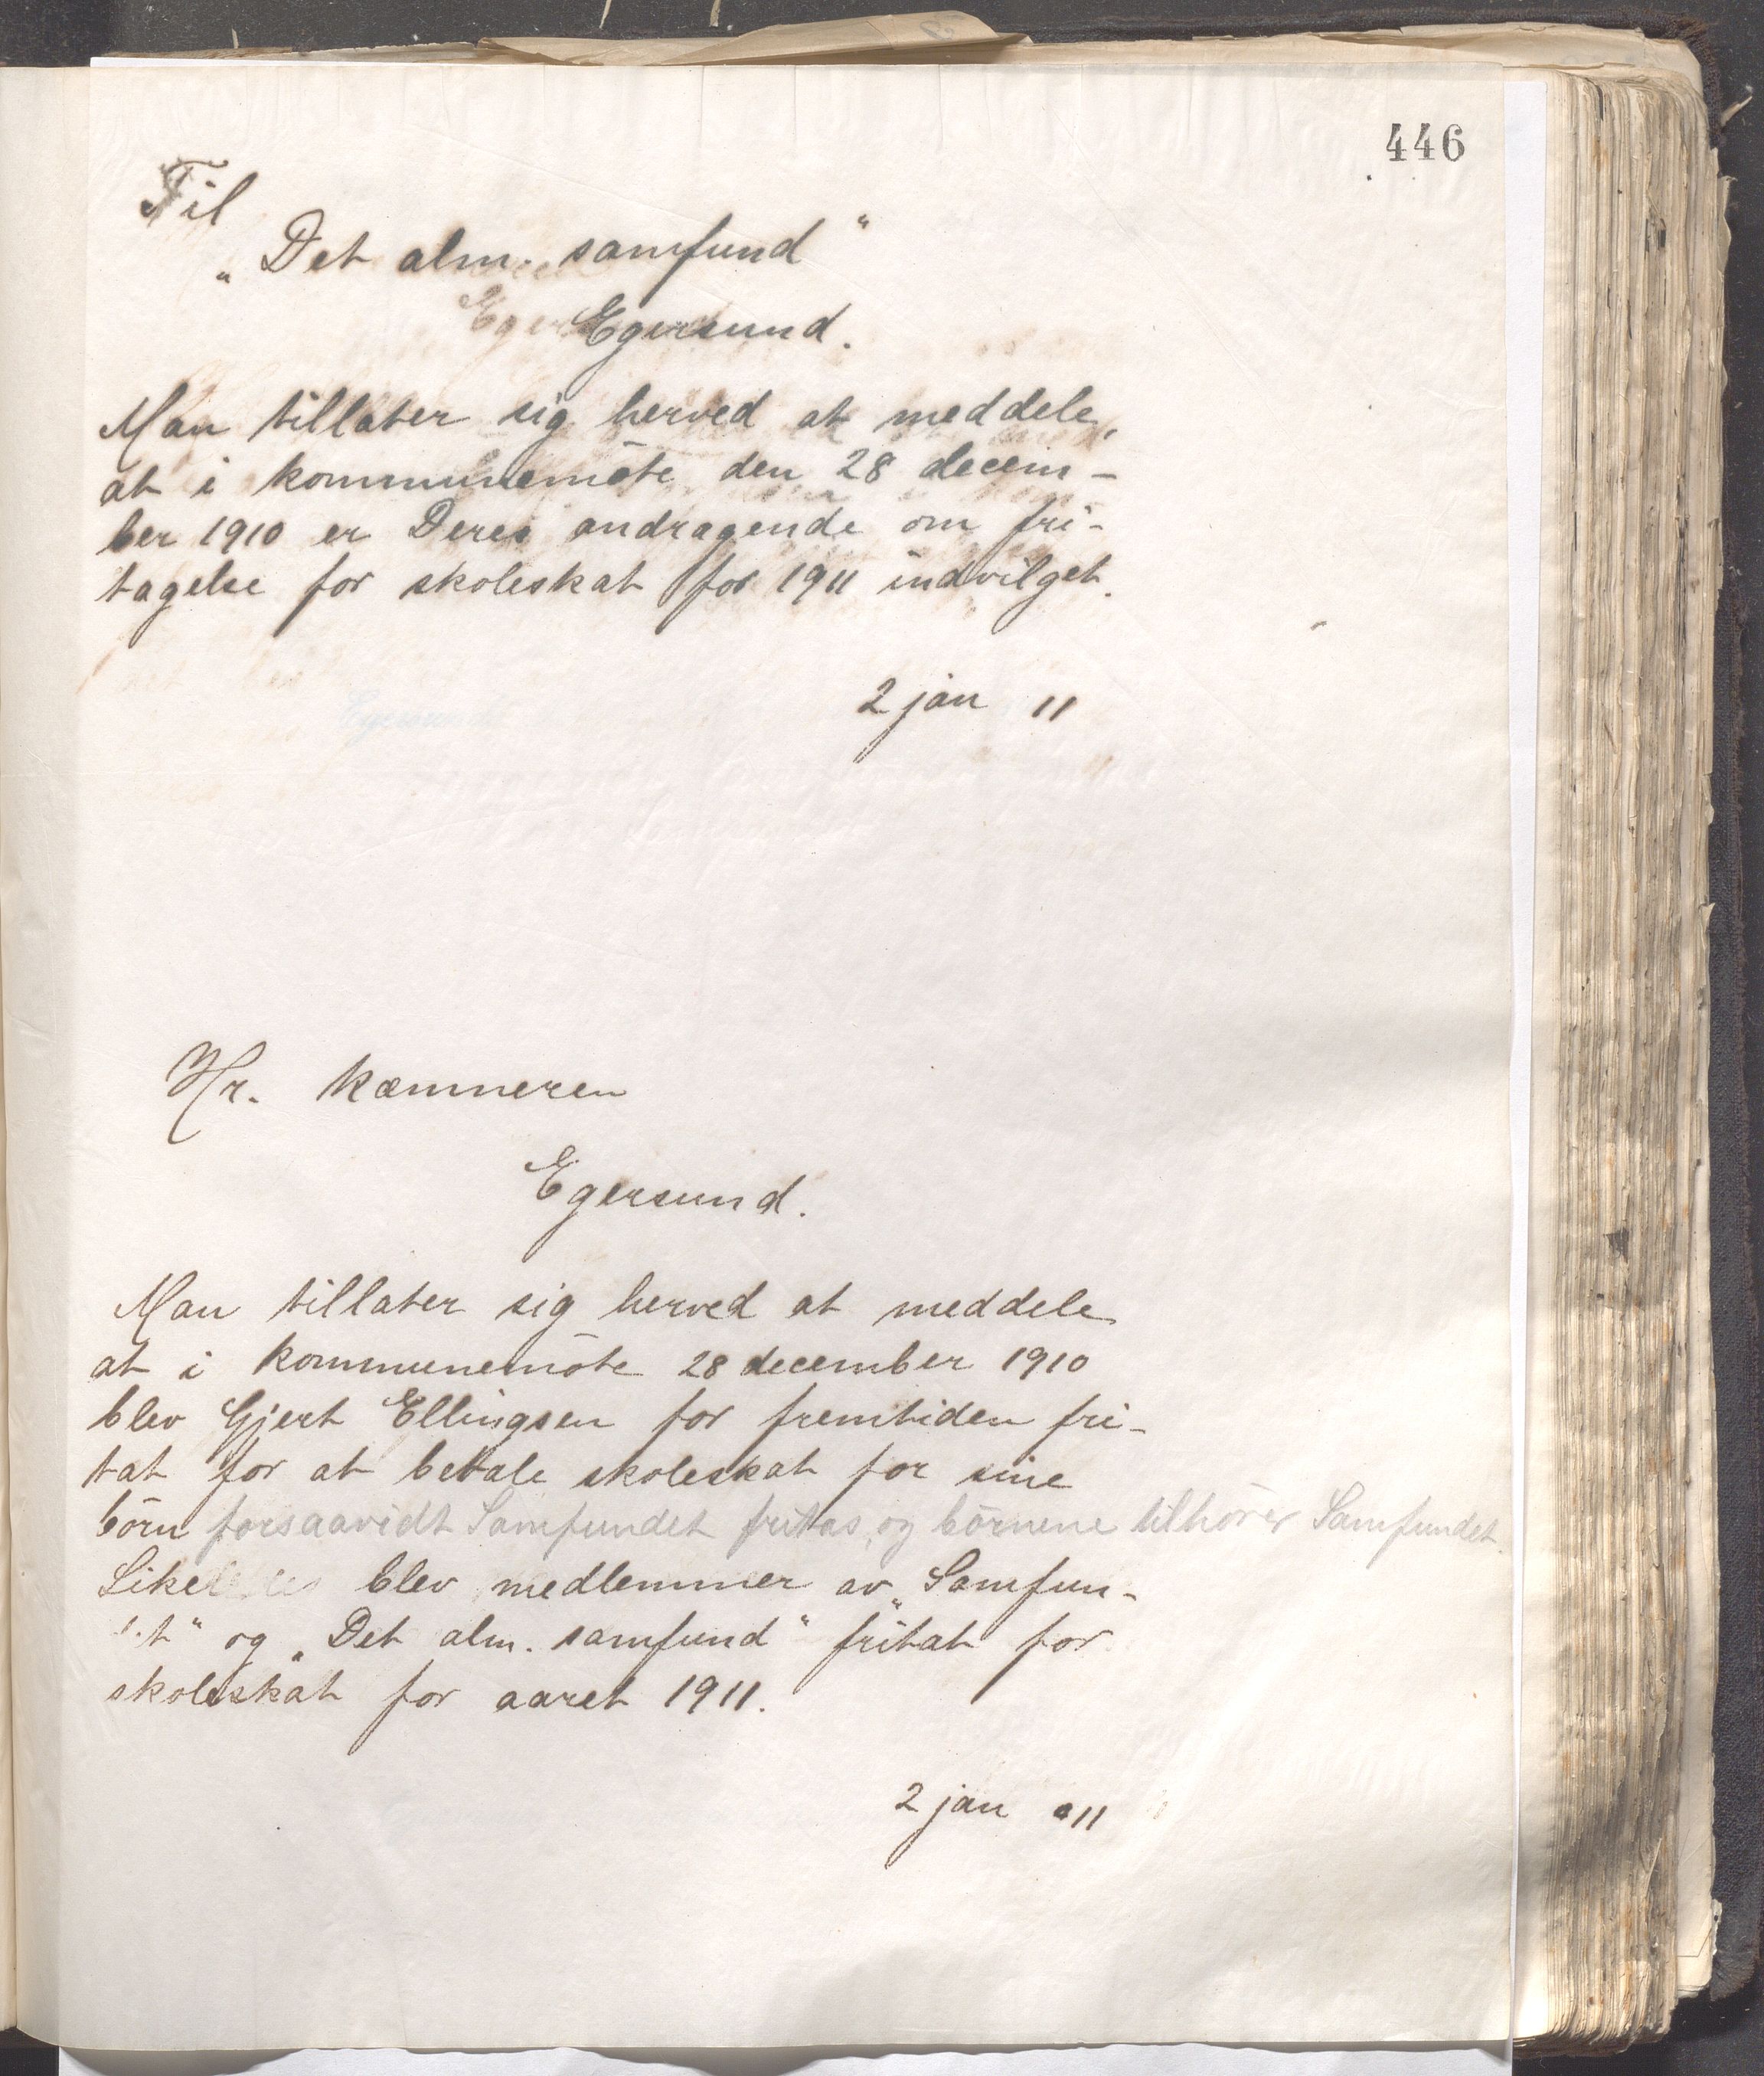 446
Til
„Det alm. samfund“
Egersund.
Man tillater sig herved at meddele,
at i kommunemöte den 28 decem-
ber 1910 er Deres andragende om fri-
tagelse for skoleskat for 1911 indvilget.
2 jan 11
Hr. kæmneren
Egersund.
Man tillater sig herved at meddele
at i kommunemöte 28 december 1910
blev Gjert Ellingsen for fremtiden fri-
tat for at betale skoleskat for sine
börn forsaavidt Samfundet fritas, og börnene tilhörer Samfundet.
Likeledes blev medlemmer av „Samfun-
det“ og „Det alm. samfund“ fritat for
skoleskat for aaret 1911.
2 jan 11